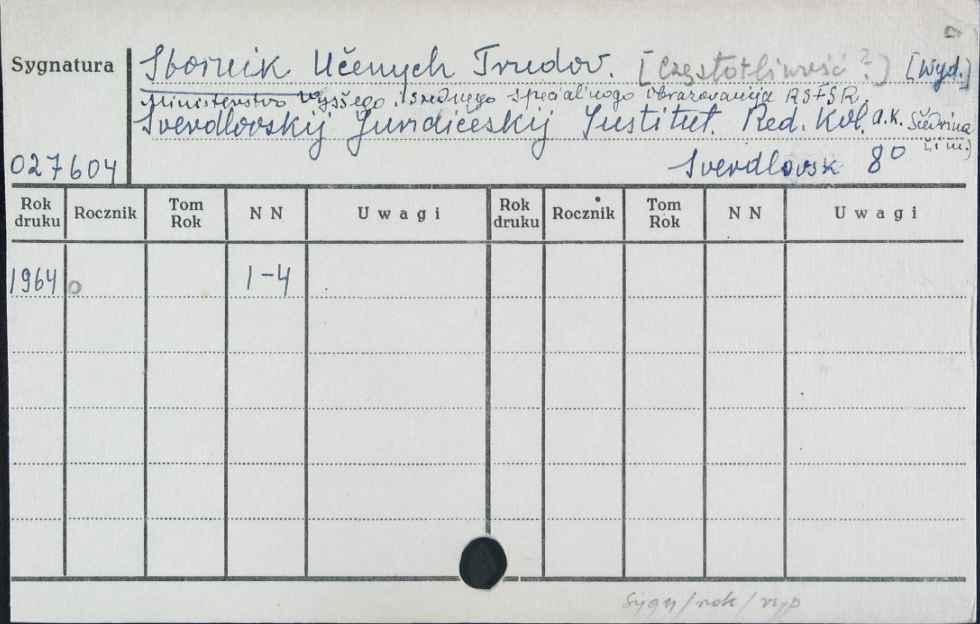 Sygnatura
Sbornik Učenych Trudov. [Częstotliwość?] [Wyd.]
Ministerstvo vysšego i srednego special'nogo obrazovanija RSFSR.
Sverdlovskij Juridičeskij Institut. Red. Kol. A.K. Ščedrina
[i in.]
027604 Sverdlovsk 8°
Rok druku Rocznik Tom Rok N N Uwagi Rok druku Rocznik Tom Rok N N Uwagi
1964 1-4
Sygn/rok/wyp